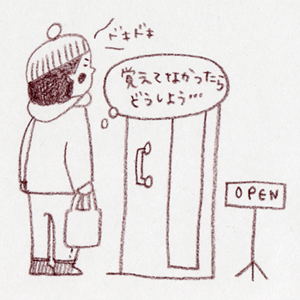 ドキドキ
覚えてなかったら
どうしよう…
OPEN